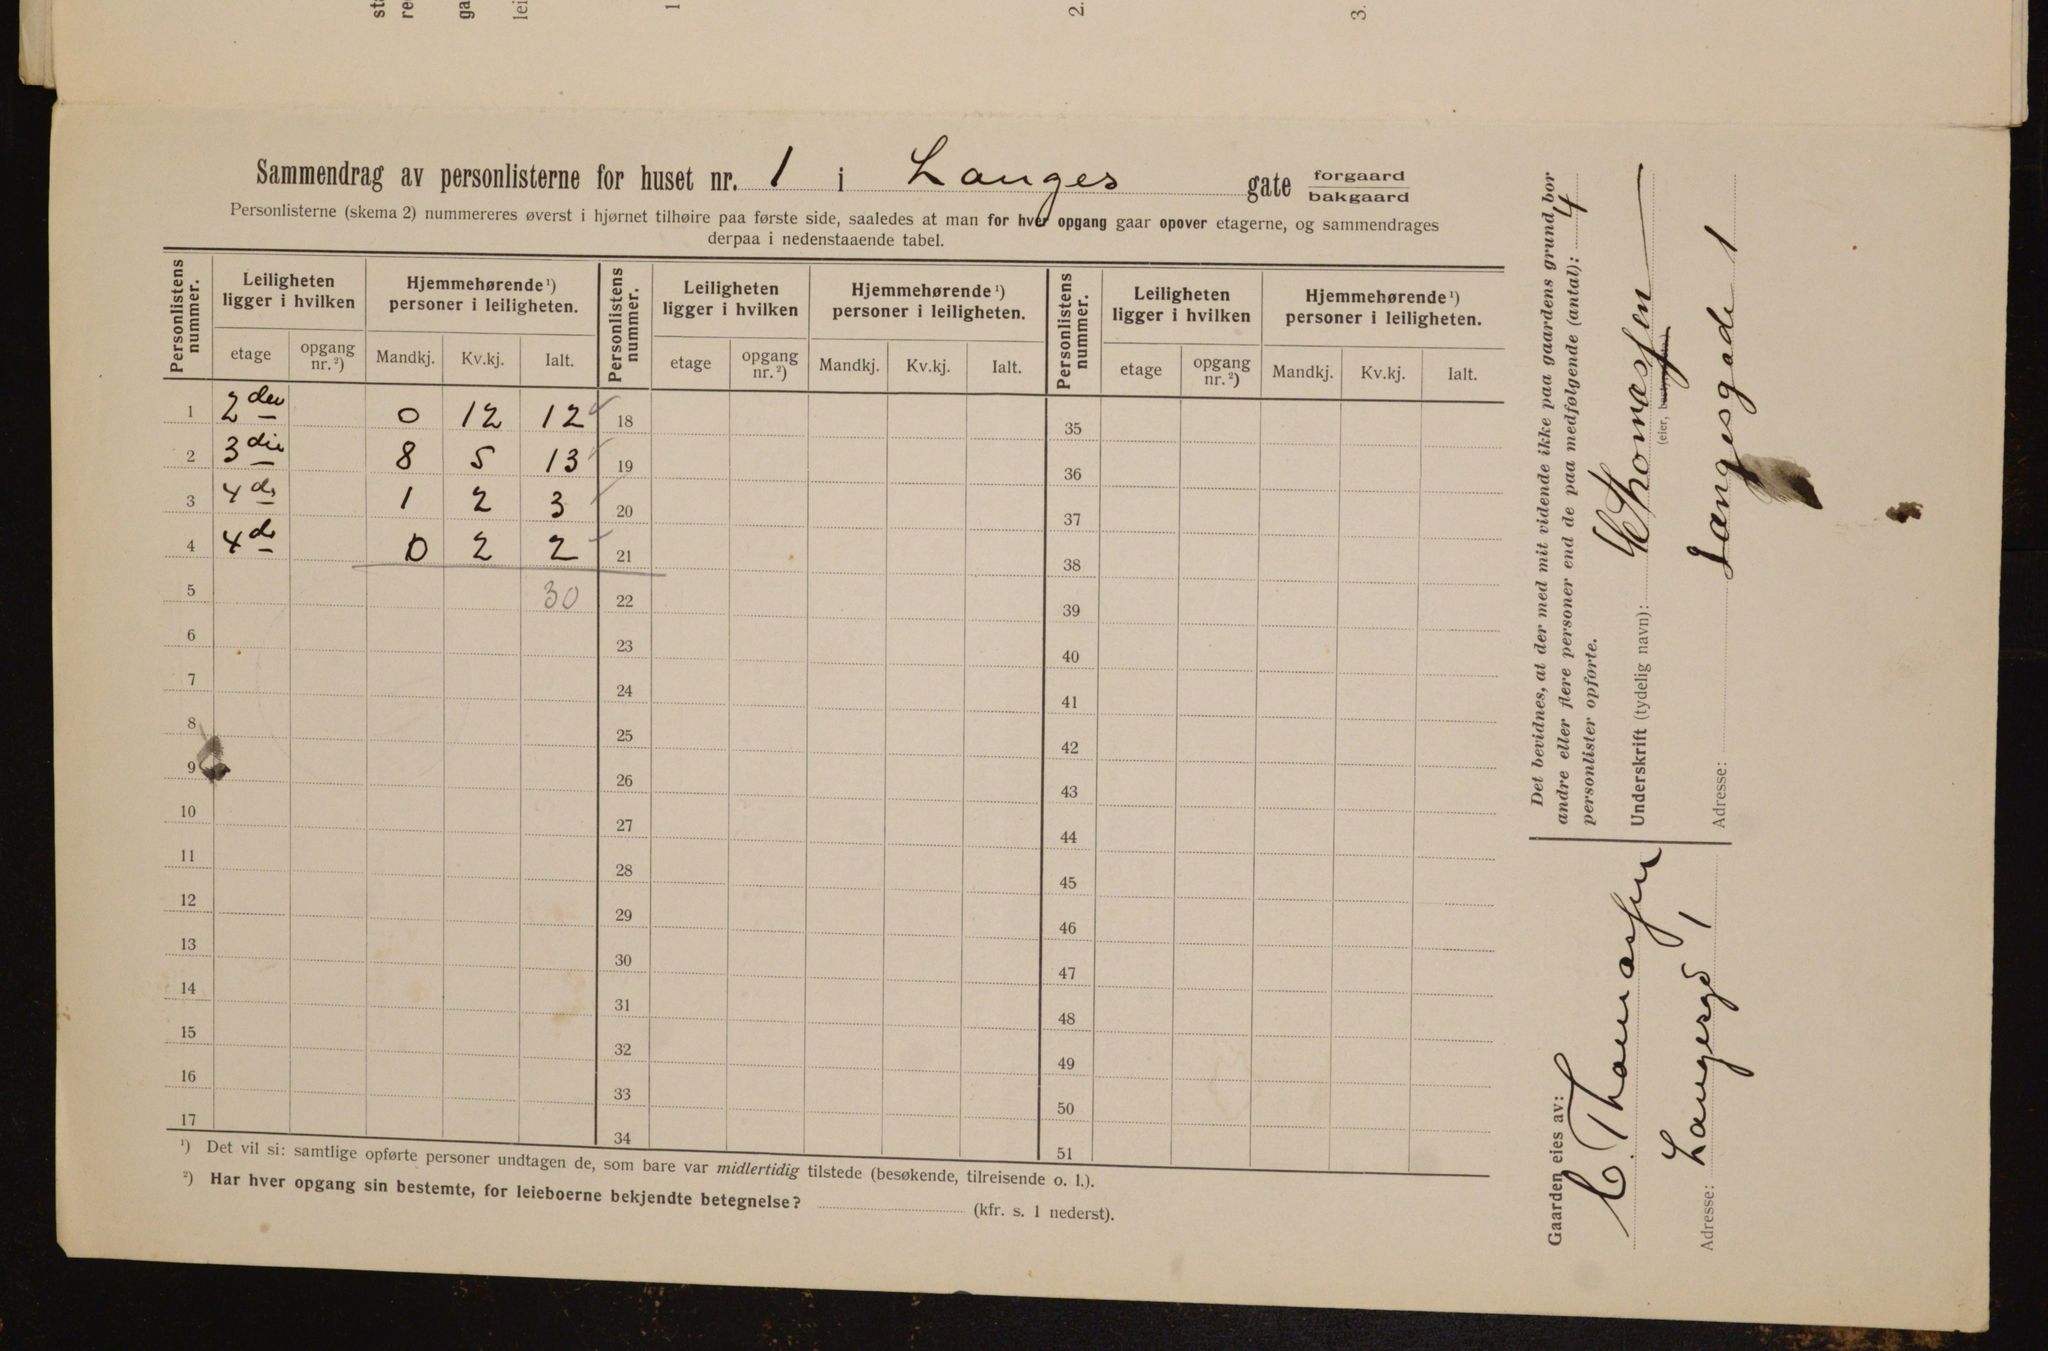 Sammendrag av personlisterne for huset nr. 1 i Langes gate forgaard
bakgaard
Personlisterne (skema 2) nummereres øverst i hjørnet tilhøire paa første side, saaledes at man for hver opgang gaar opover etagerne, og sammendrages
derpaa i nedenstaaende tabel.
Personlistens nummer. Leiligheten ligger i hvilken Hjemmehørende ¹) personer i leiligheten. Personlistens nummer. Leiligheten ligger i hvilken Hjemmehørende ¹) personer i leiligheten. Personlistens nummer. Leiligheten ligger i hvilken Hjemmehørende ¹) personer i leiligheten.
etage opgang nr. ²) Mandkj. Kv.kj. Ialt. etage opgang nr. ²) Mandkj. Kv.kj. Ialt. etage opgang nr. ²) Mandkj. Kv.kj. Ialt.
1 2 den 0 12 12 18 35
2 3 die 8 5 13 19 36
3 4 de 1 2 3 20 37
4 4 de 0 2 2 21 38
5 30 22 39
6 23 40
7 24 41
8 25 42
9 26 43
10 27 44
11 28 45
12 29 46
13 30 47
14 31 48
15 32 49
16 33 50
17 34 51
¹) Det vil si: samtlige opførte personer undtagen de, som bare var midlertidig tilstede (besøkende, tilreisende o. l.).
²) Har hver opgang sin bestemte, for leieboerne bekjendte betegnelse? (kfr. s. 1 nederst).
Det bevidnes, at der med mit vidende ikke paa gaardens grund bor
andre eller flere personer end de paa medfølgende (antal): 4
personlister opførte.
Underskrift (tydelig navn): C Thomassen
(eier,
Adresse: Langesgade 1
Gaarden eies av:
C. Thomassen
Adresse: Langesgd 1
1 2. 3.